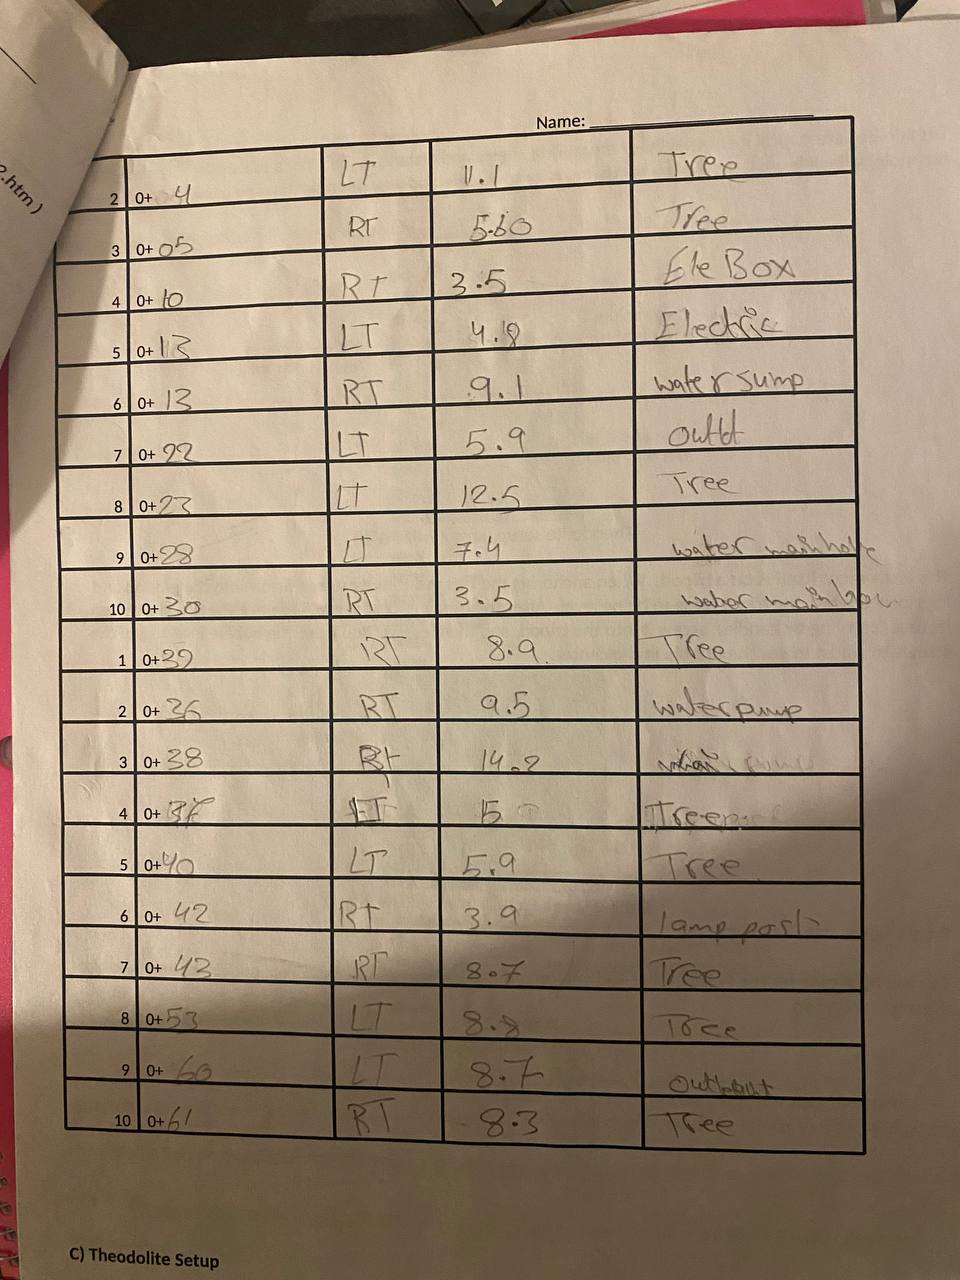 Name:
2 0+ 4 LT 11.1 Tree
3 0+ 05 RT 5.60 Tree
4 0+ 10 RT 3.5 Ele Box
5 0+ 13 LT 4.8 Electric
6 0+ 13 RT 9.1 water sump
7 0+ 22 LT 5.9
8 0+ 23 LT 12.5 Tree
9 0+ 28 LT 7.4 water
10 0+ 30 RT 3.5 water
1 0+ 39 RT 8.9 Tree
2 0+ 36 RT 9.5 waterpump
3 0+ 38 Rt 14.2
4 0+ LT 15 Tree
5 0+ 40 LT 5.9 Tree
6 0+ 42 RT 3.9 lamp post
7 0+ 43 RT 8.7 Tree
8 0+ 53 LT 8.8 Tree
9 0+ 60 LT 8.7
10 0+ 61 RT 8.3 Tree
C) Theodolite Setup